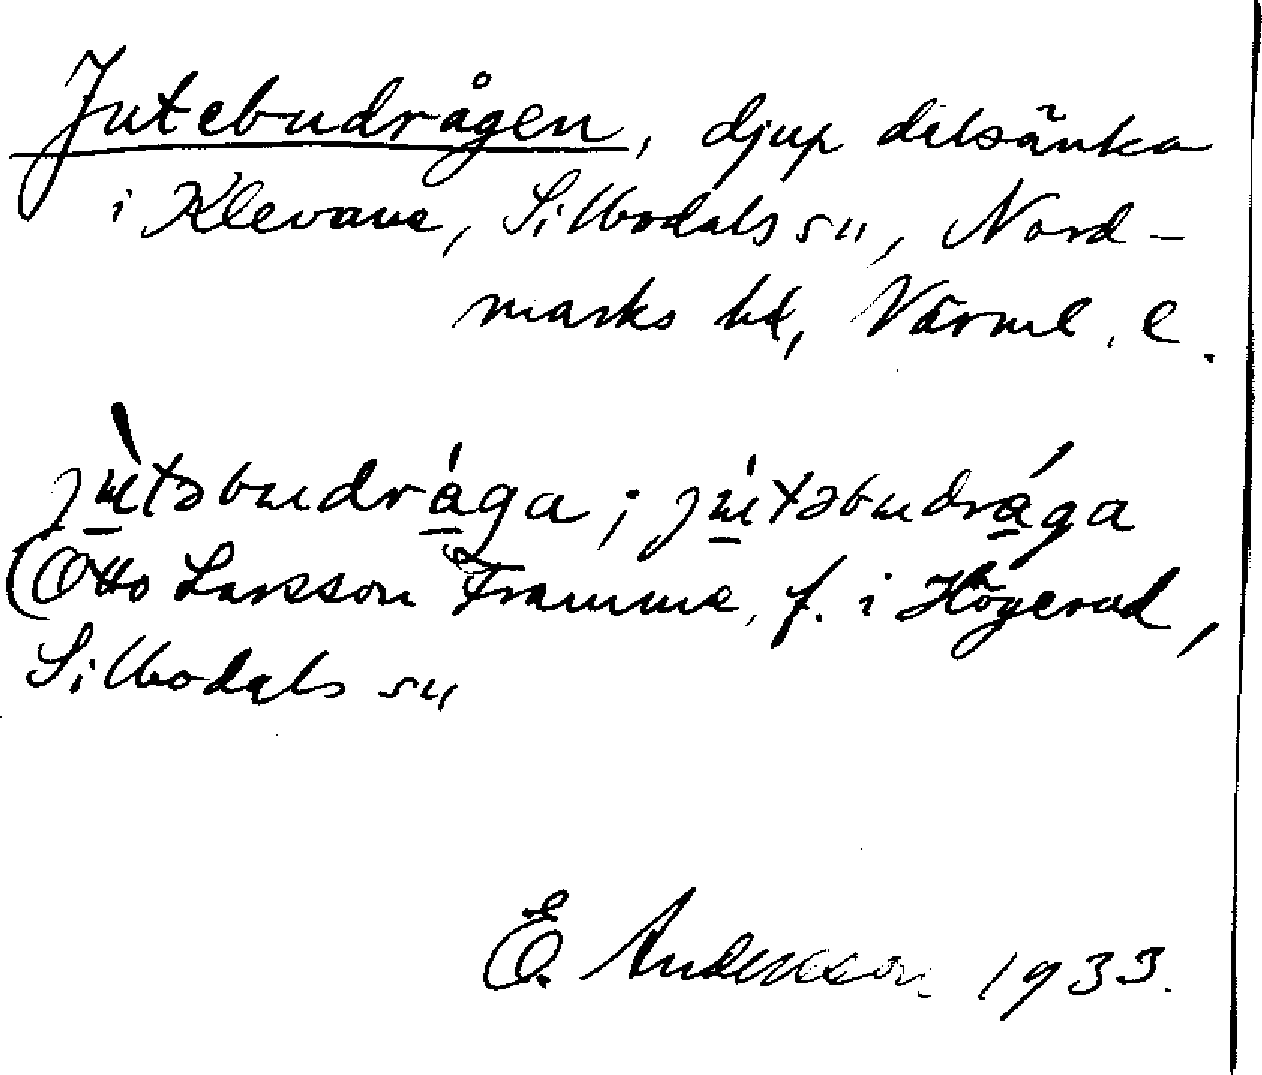 Jutebudrågen, djup dalsänka
i Klevane, Silbodals sn, Nord-
marks hd, Värml. l.
jùtəbudrága; jútəbudrága
(Otto Larsson Framme, f. i Högerud,
Silbodals sn
E. Andersson 1933.